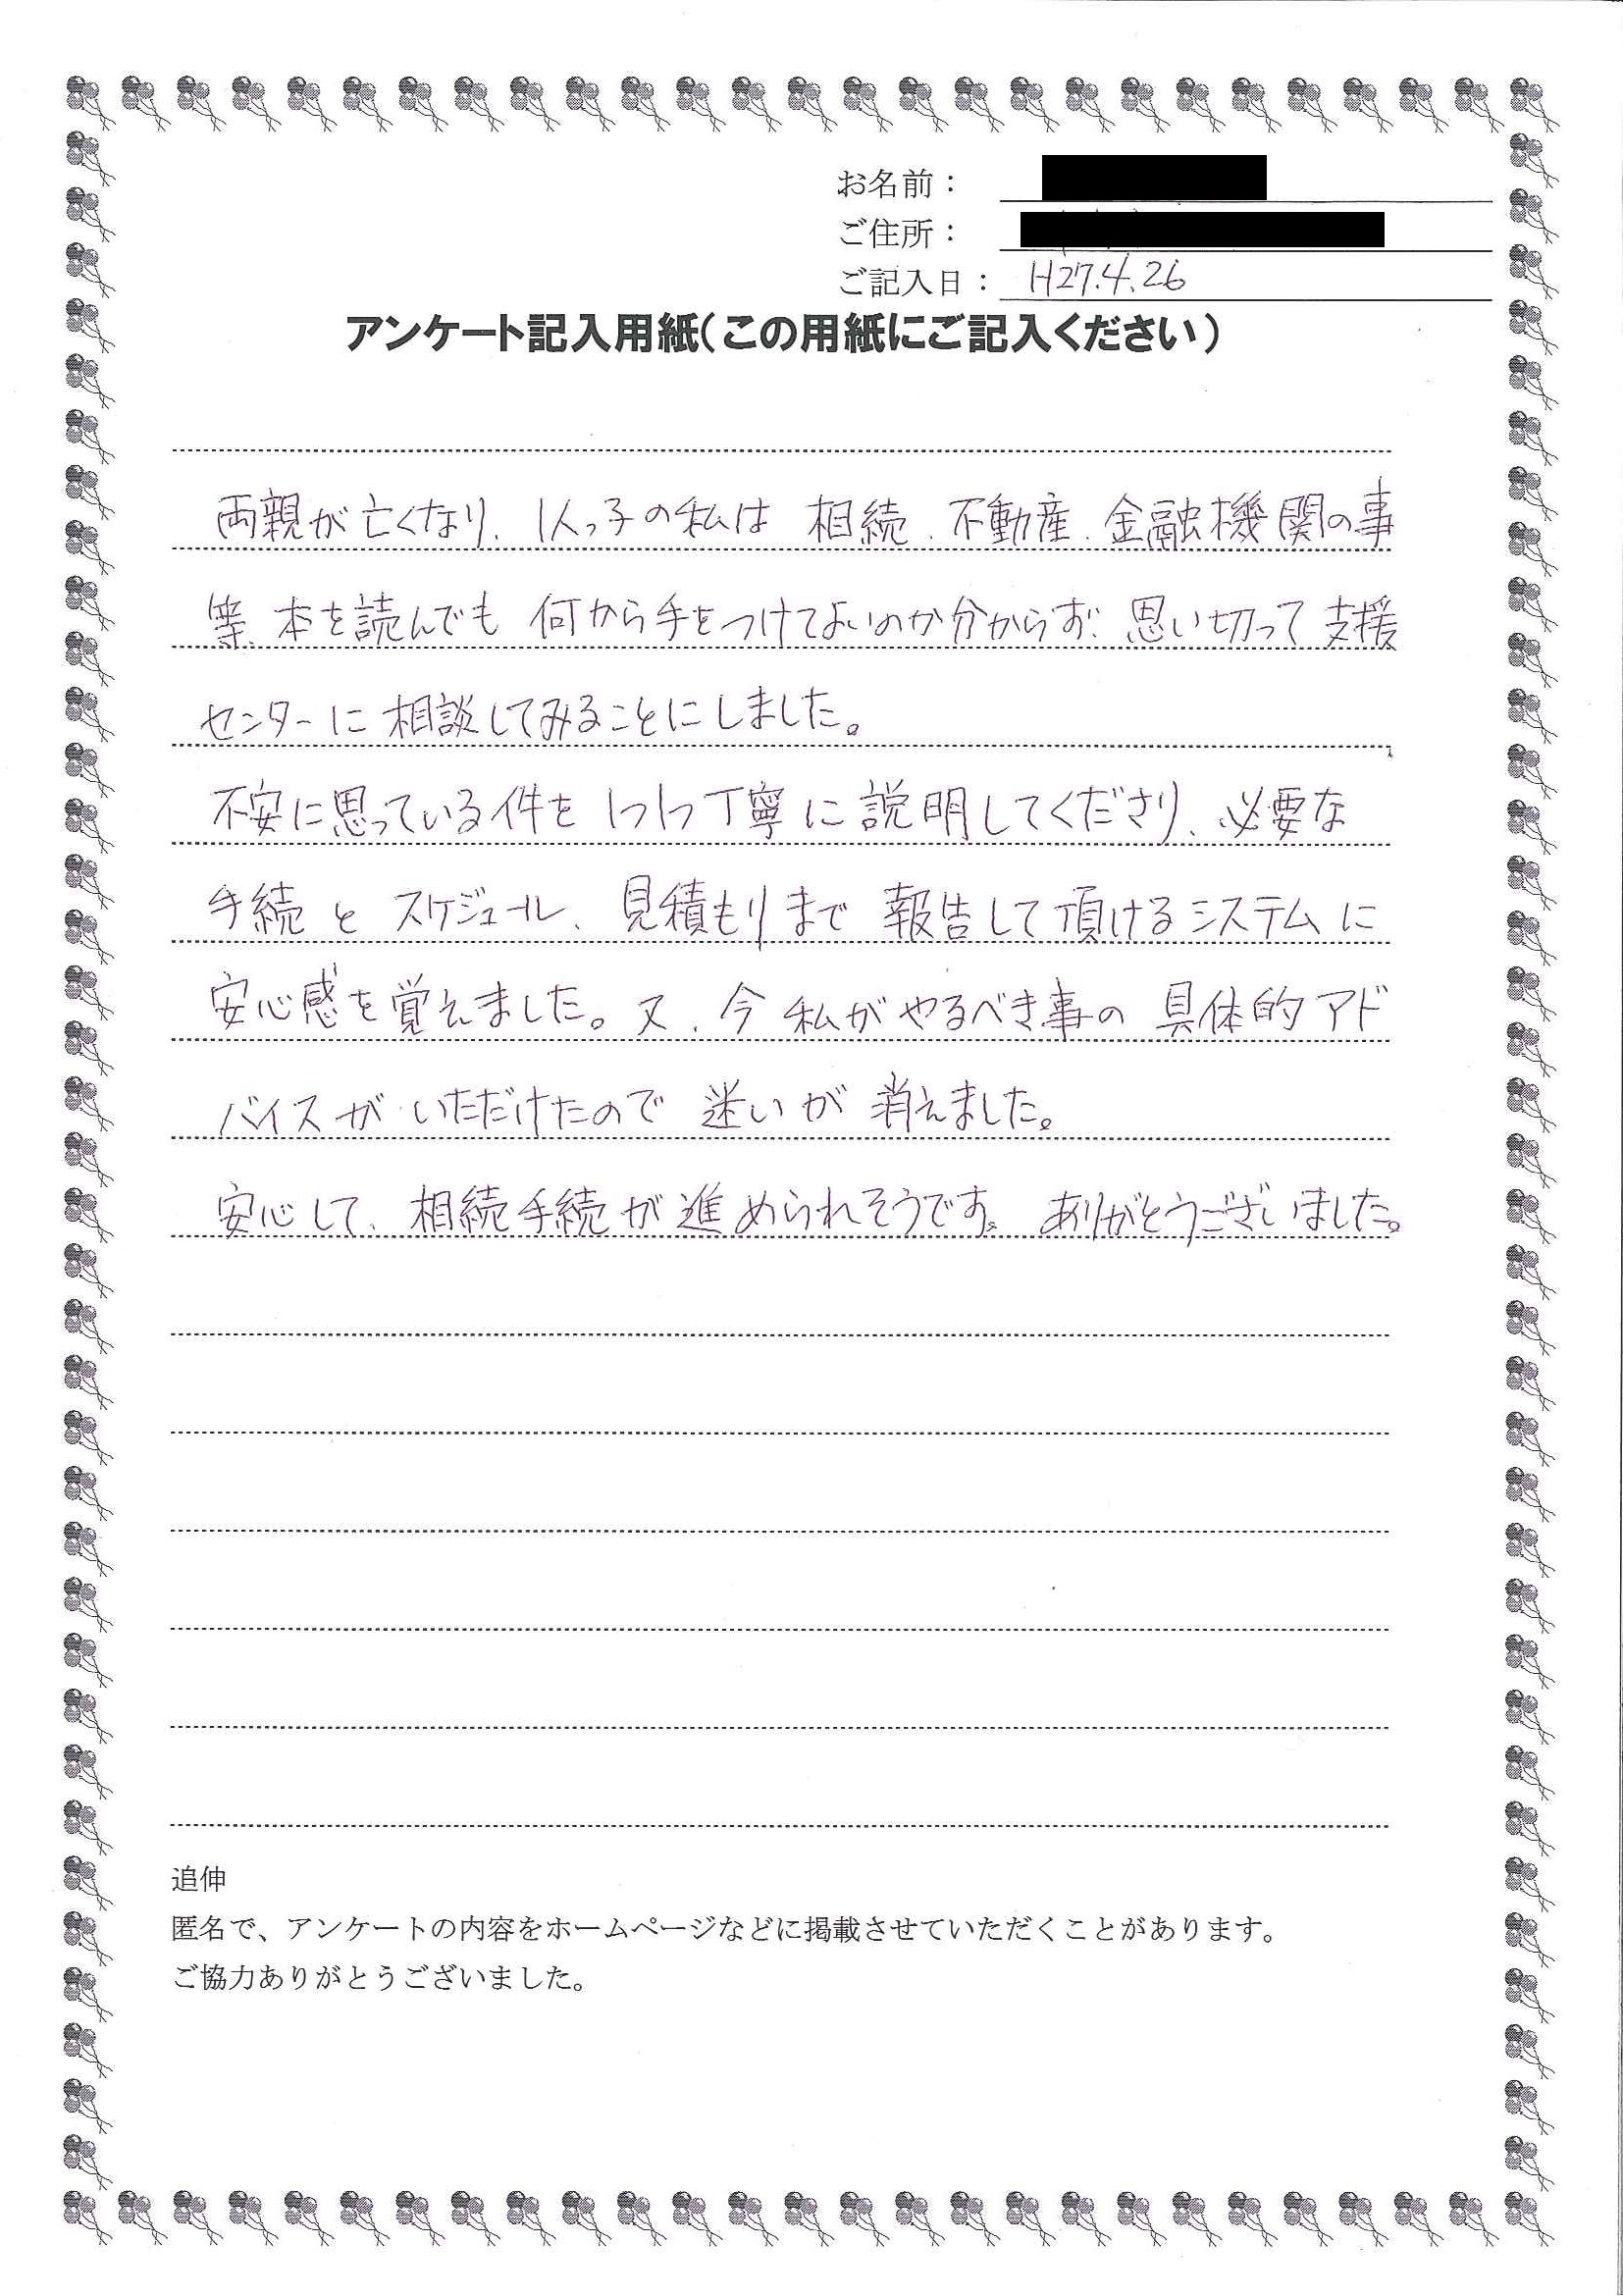 お名前：
ご住所：
ご記入日： H27.4.26
アンケート記入用紙（この用紙にご記入ください）
両親が亡くなり、1人っ子の私は 相続、不動産、金融機関の事
等、本を読んでも 何から手をつけてよいのか分からず、思い切って 支援
センターに 相談してみることにしました。
不安に思っている件を 1つ1つ丁寧に説明してくださり、必要な
手続と スケジュール、見積もりまで 報告して頂けるシステムに
安心感を覚えました。又、今 私がやるべき事の 具体的アド
バイスが いただけたので 迷いが 消えました。
安心して、相続手続が進められそうです。ありがとうございました。
追伸
匿名で、アンケートの内容をホームページなどに掲載させていただくことがあります。
ご協力ありがとうございました。